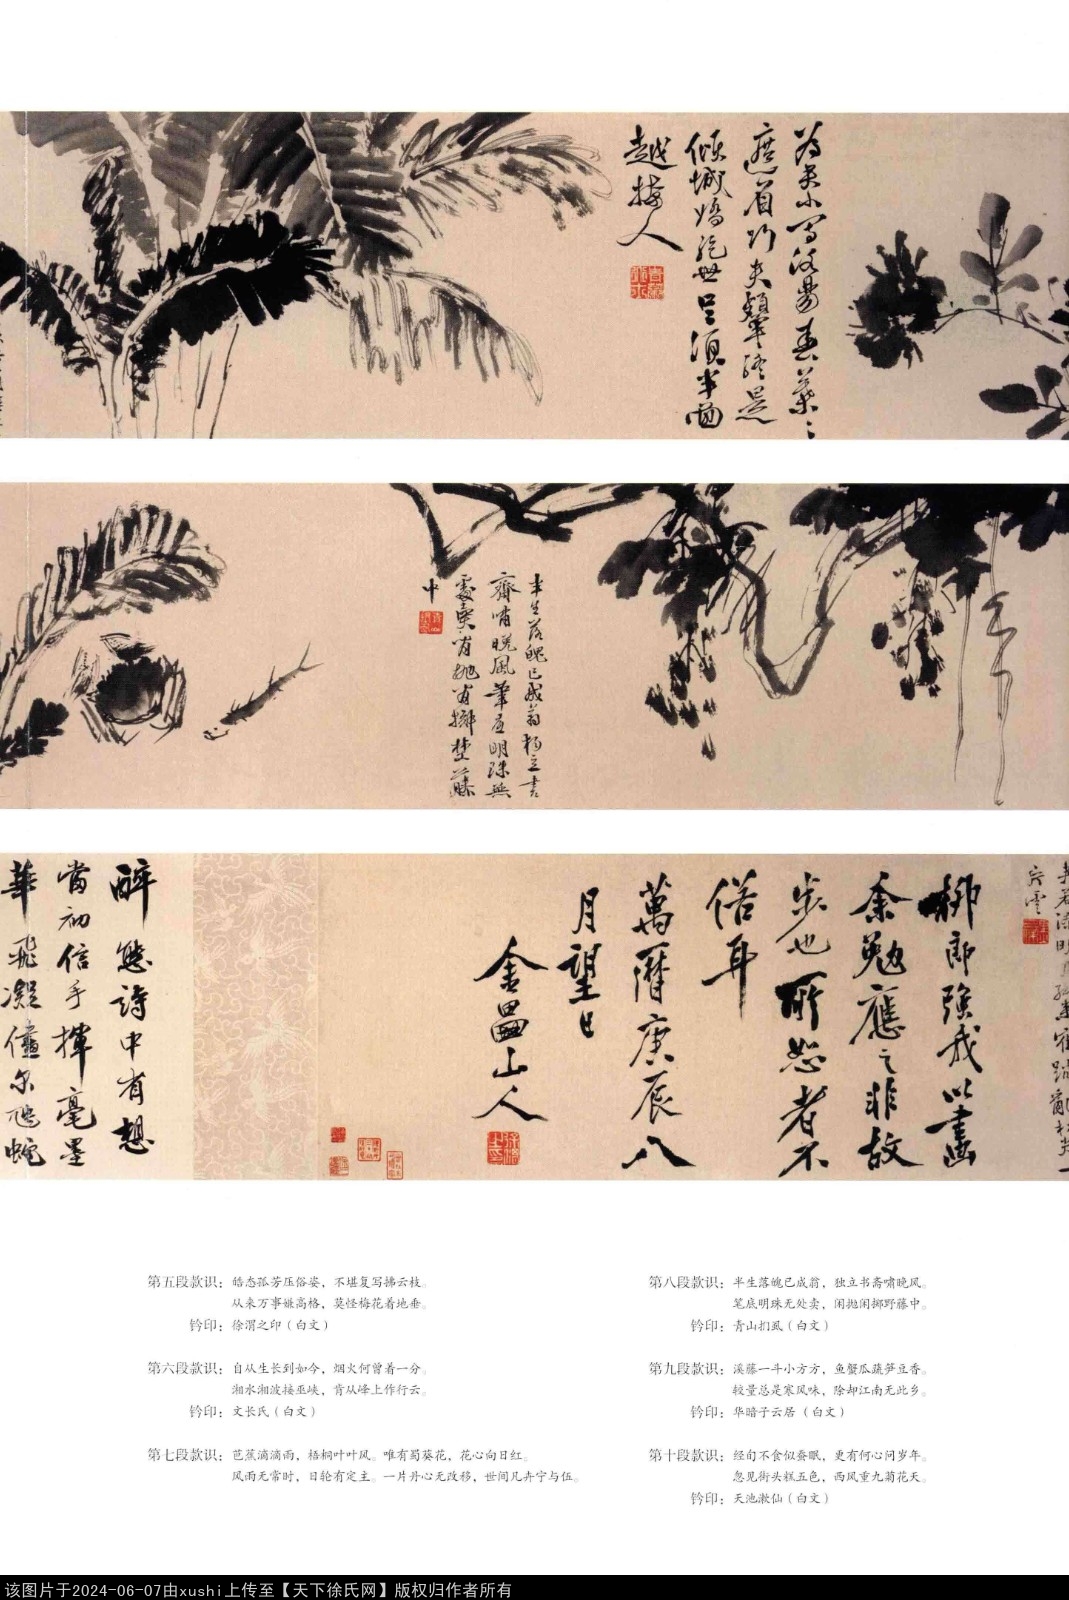 為君小写洛陽春葉〻
遮眉巧笑顰終是
傾城嬌絕世只須半面
越撩人
半生落魄已成翁獨立書
齋嘯晚風筆底明珠無
處賣閒拋閒擲野藤
中
柳郎強我以畫
余勉應之非故
步也所恕者不
俗耳
萬曆庚辰八
月望日
金罍山人
醉態詩中有想
當初信手揮毫墨
華飛凝
第五段款识：皓态孤芳压俗姿，不堪复写拂云枝。
从来万事嫌高格，莫怪梅花着地垂。
钤印：徐渭之印（白文）
第六段款识：自从生长到如今，烟火何曾着一分。
湘水湘波接巫峡，肯从峰上作行云。
钤印：文长氏（白文）
第七段款识：芭蕉滴滴雨，梧桐叶叶风。唯有蜀葵花，花心向日红。
风雨无常时，日轮有定主。一片丹心无改移，世间凡卉宁与伍。
第八段款识：半生落魄已成翁，独立书斋啸晚风。
笔底明珠无处卖，闲抛闲掷野藤中。
钤印：青山扪虱（白文）
第九段款识：溪藤一斗小方方，鱼蟹瓜蔬笋豆香。
较量总是寒风味，除却江南无此乡。
钤印：华暗子云居（白文）
第十段款识：经旬不食似蚕眠，更有何心问岁年。
忽见街头糕五色，西风重九菊花天。
钤印：天池漱仙（白文）
该图片于2024-06-07由xushi上传至【天下徐氏网】版权归作者所有